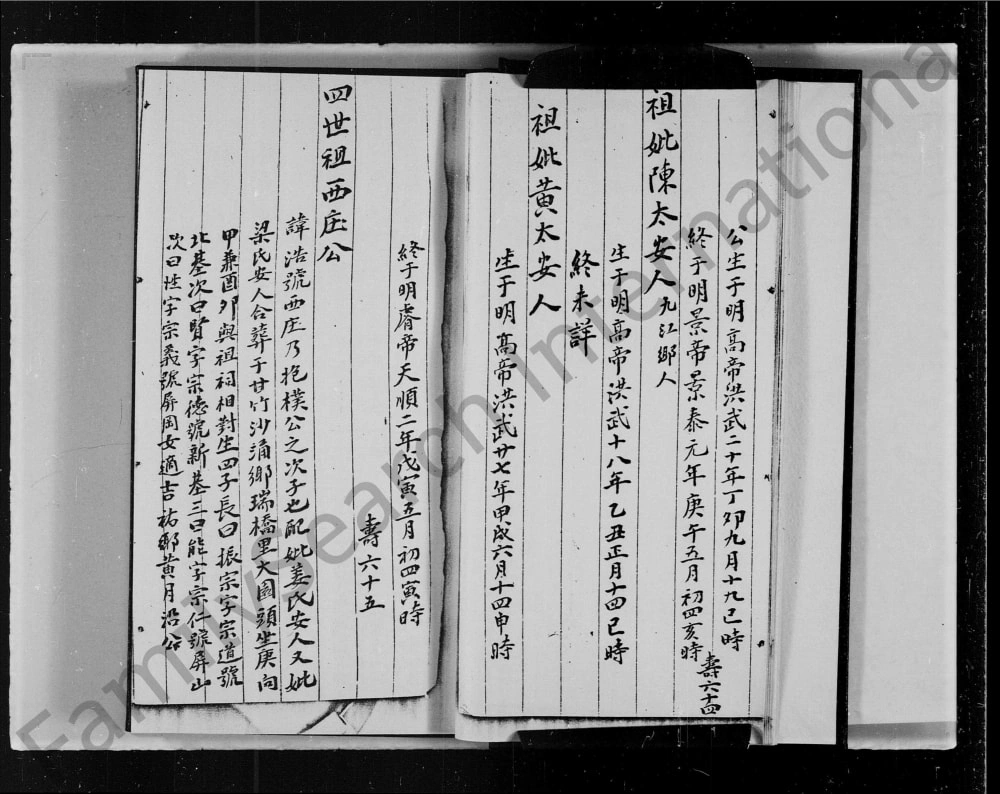 公生于明高帝洪武二十年丁卯九月十九巳時
終于明景帝景泰元年庚午五月初四亥時
壽六十四
祖妣陳太安人九江鄉人
生于明高帝洪武十八年乙丑正月十四巳時
終未詳
祖妣黃太安人
生于明高帝洪武廿七年甲戌六月十四申時
終于明睿帝天順二年戊寅五月初四寅時
壽六十五
四世祖西庄公
諱浩號西庄乃抱樸公之次子也配妣姜氏安人又妣
梁氏安人合葬于甘竹沙涌鄉瑞橋里大園頭坐庚向
甲兼酉卯與祖祠相對生四子長曰振宗字宗道號
北基次曰賢字宗德號新基三曰能字宗仁號屏山
次曰性字宗義號屏周女適吉祐鄉黃月沿公
FamilySearch International